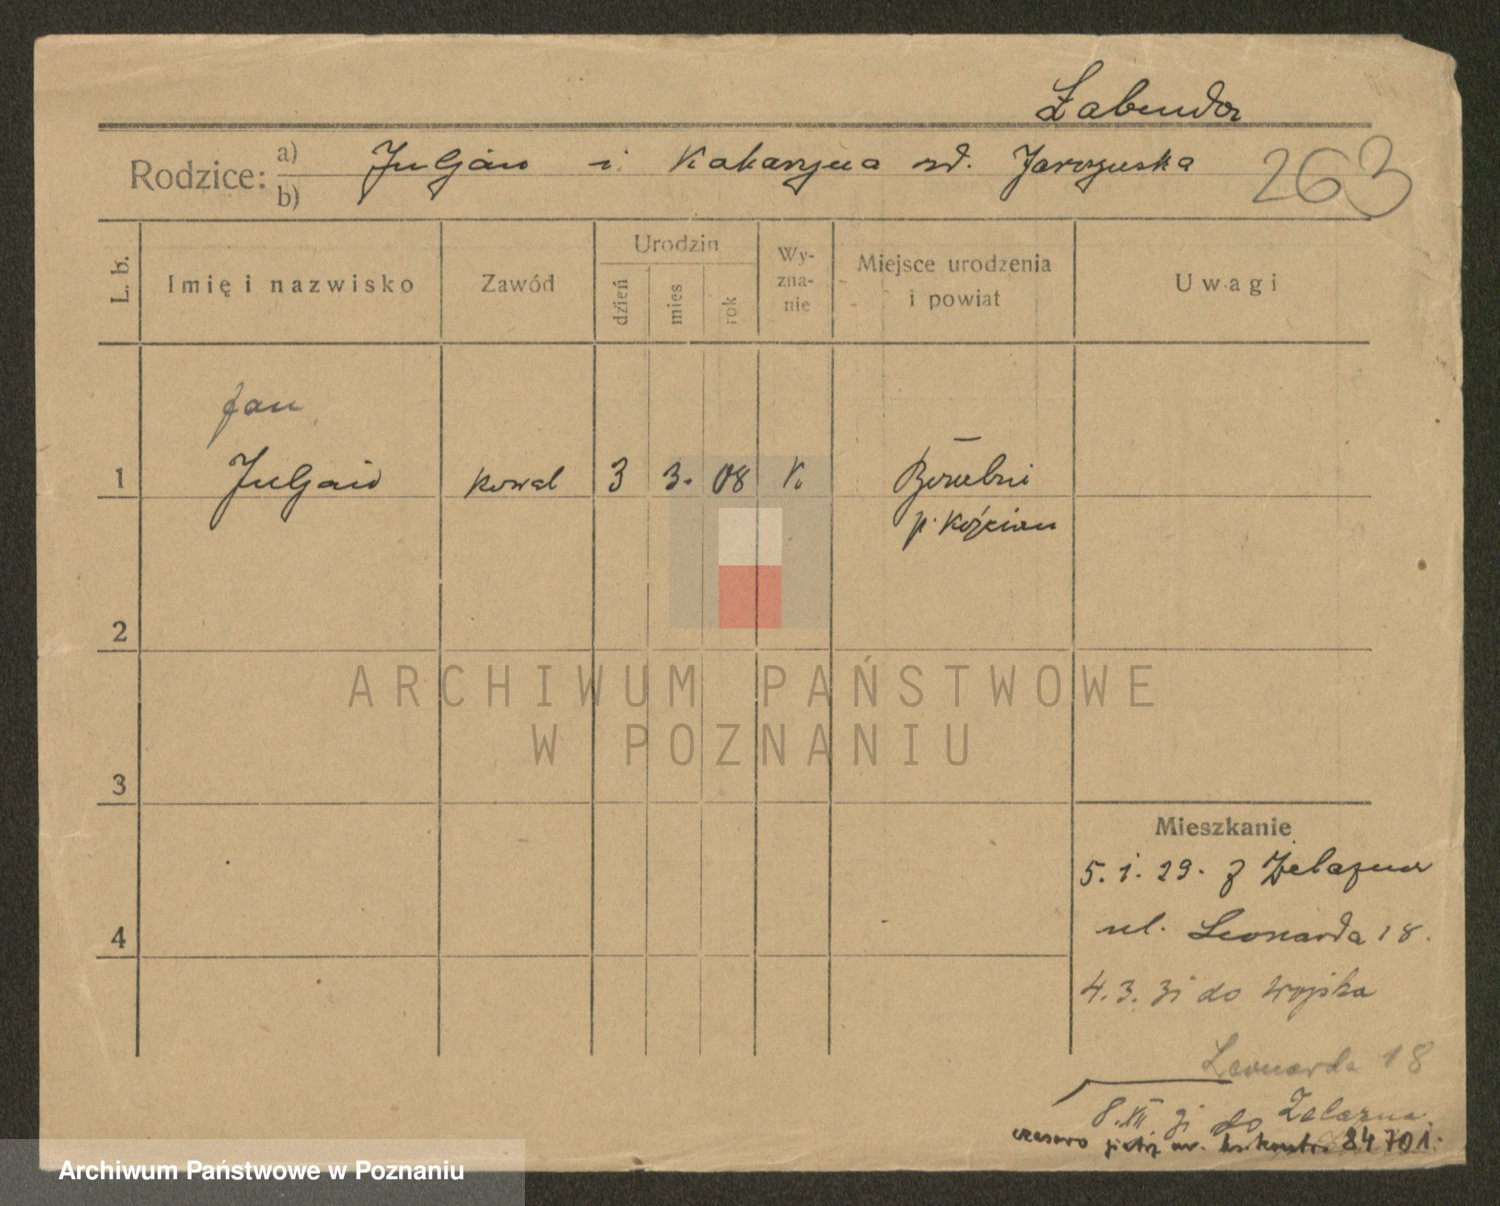 Żabendor
Rodzice: a) Juljan i Katarzyna zd. Jarczyńska 263
b)
L. b.
Imię i nazwisko
Zawód
Urodzin
dzień
mies
rok
Wy-
zna-
nie
Miejsce urodzenia
i powiat
Uwagi
Jan
1 Juljan kowal 3 3. 08 K.
p. Kościan
2
3
4
ARCHIWUM PAŃSTWOWE
W POZNANIU
Mieszkanie
5.1.29. z Żelazna
ul. Leonarda 18.
4.3.31 do wojska
Leonarda 18
8.XII 31 do Żelazna
84701.
Archiwum Państwowe w Poznaniu